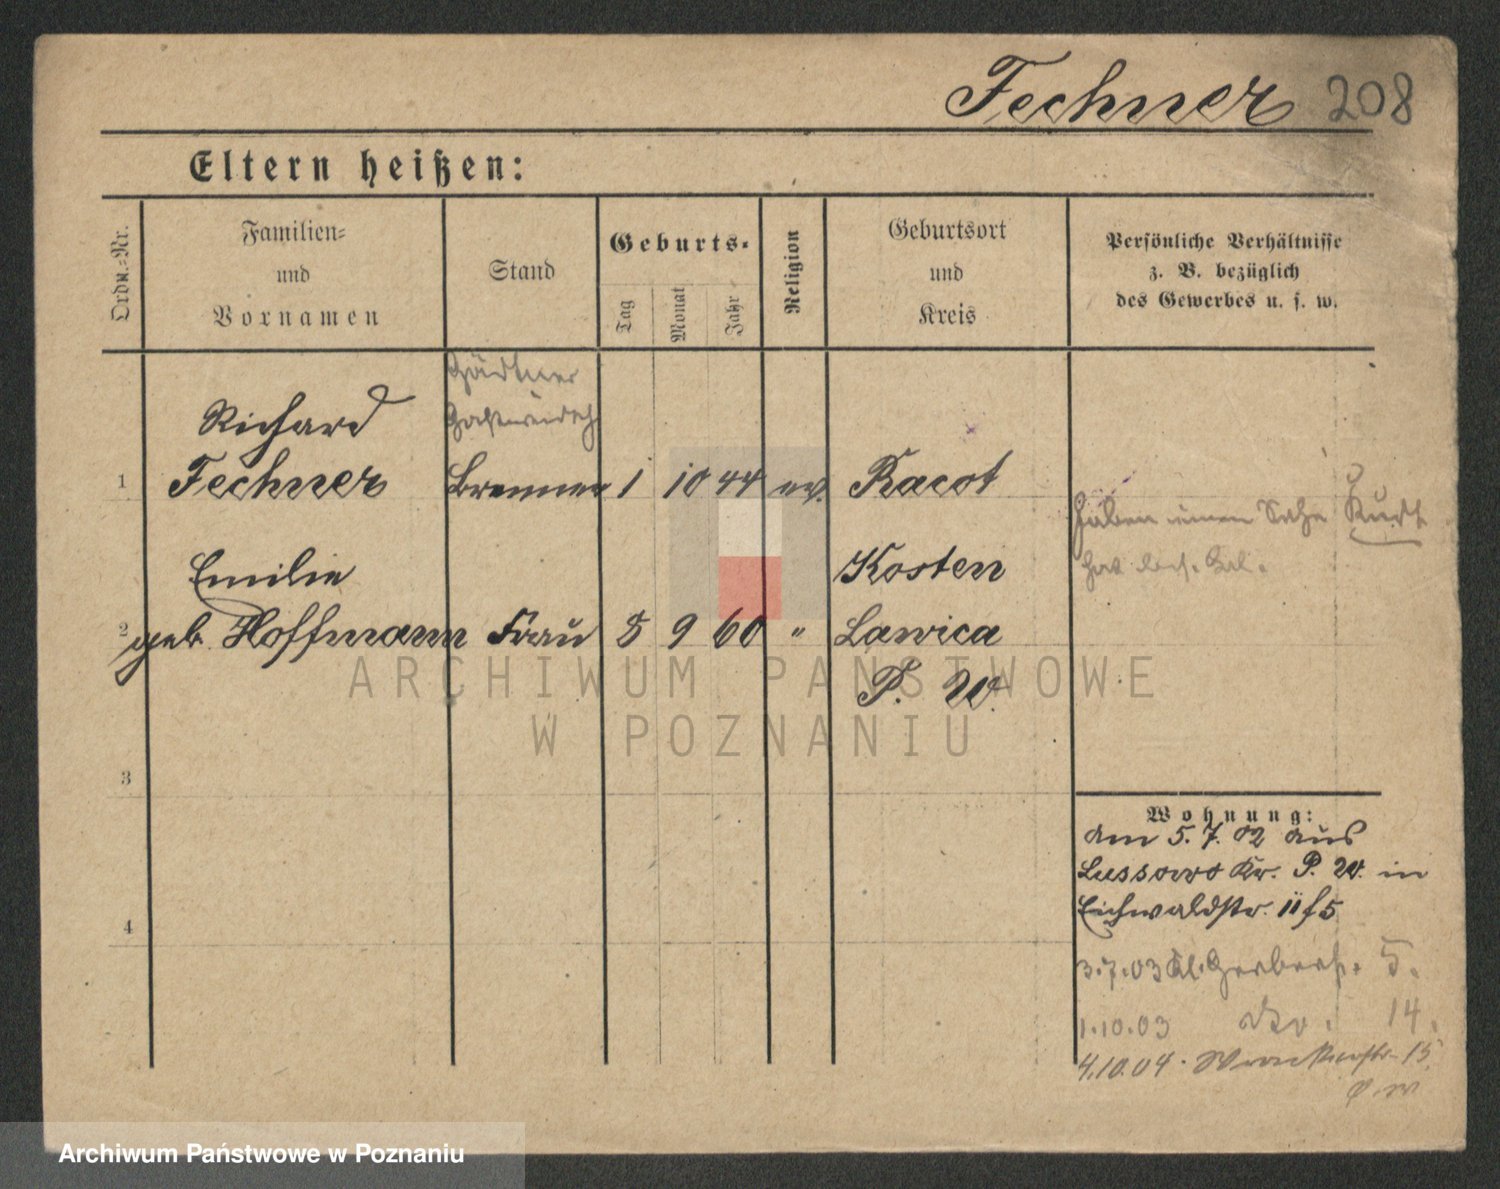 Fechner 208
Eltern heißen:
Ordn.-Nr.
Familien-
und
Vornamen
Stand
Geburts-
Tag
Monat
Jahr
Religion
Geburtsort
und
Kreis
Persönliche Verhältnisse
z. B. bezüglich
des Gewerbes u. s. w.
Gärtner
Richard
Gastwirth
1 Fechner Brenner 1 10 44 ev. Racot
haben einen Sohn Kurt
Emilie
Kosten
2 geb. Hoffmann Frau 8 9 60 " Lawica
P. W.
3
4
Wohnung:
am 5. 7. 02 aus
Lussowo Kr. P. W. in
Eichwaldstr. II f 5
3.7.03 Kl. Gerberstr. 5.
1.10.03 14.
4.10.04. 15
ARCHIWUM PAŃSTWOWE
W POZNANIU
Archiwum Państwowe w Poznaniu